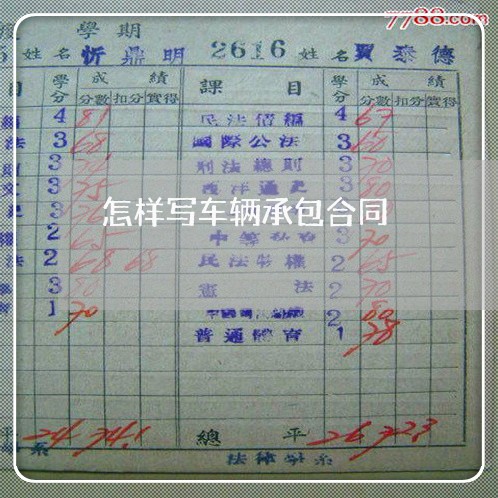 7788.com
學期
5 姓名 忻鼎明 2616 姓名 賈泰德
目 學分 成績 分數 扣分 實得 課目 學分 成績 分數 扣分 實得
4 81 民法債編 4 67
法 3 68 國際公法 3 60
3 刑法總則 3 70
文 3 75 西洋通史 3 80
3
怎样写车辆承包合同
權 2 65 3 70
法 2 68 68 民法物權 2 65
3 80 憲法 2 70
1 70 2 80
普通體育 1 78
平 24 74.1 總平 26 72.3
系 法律學系